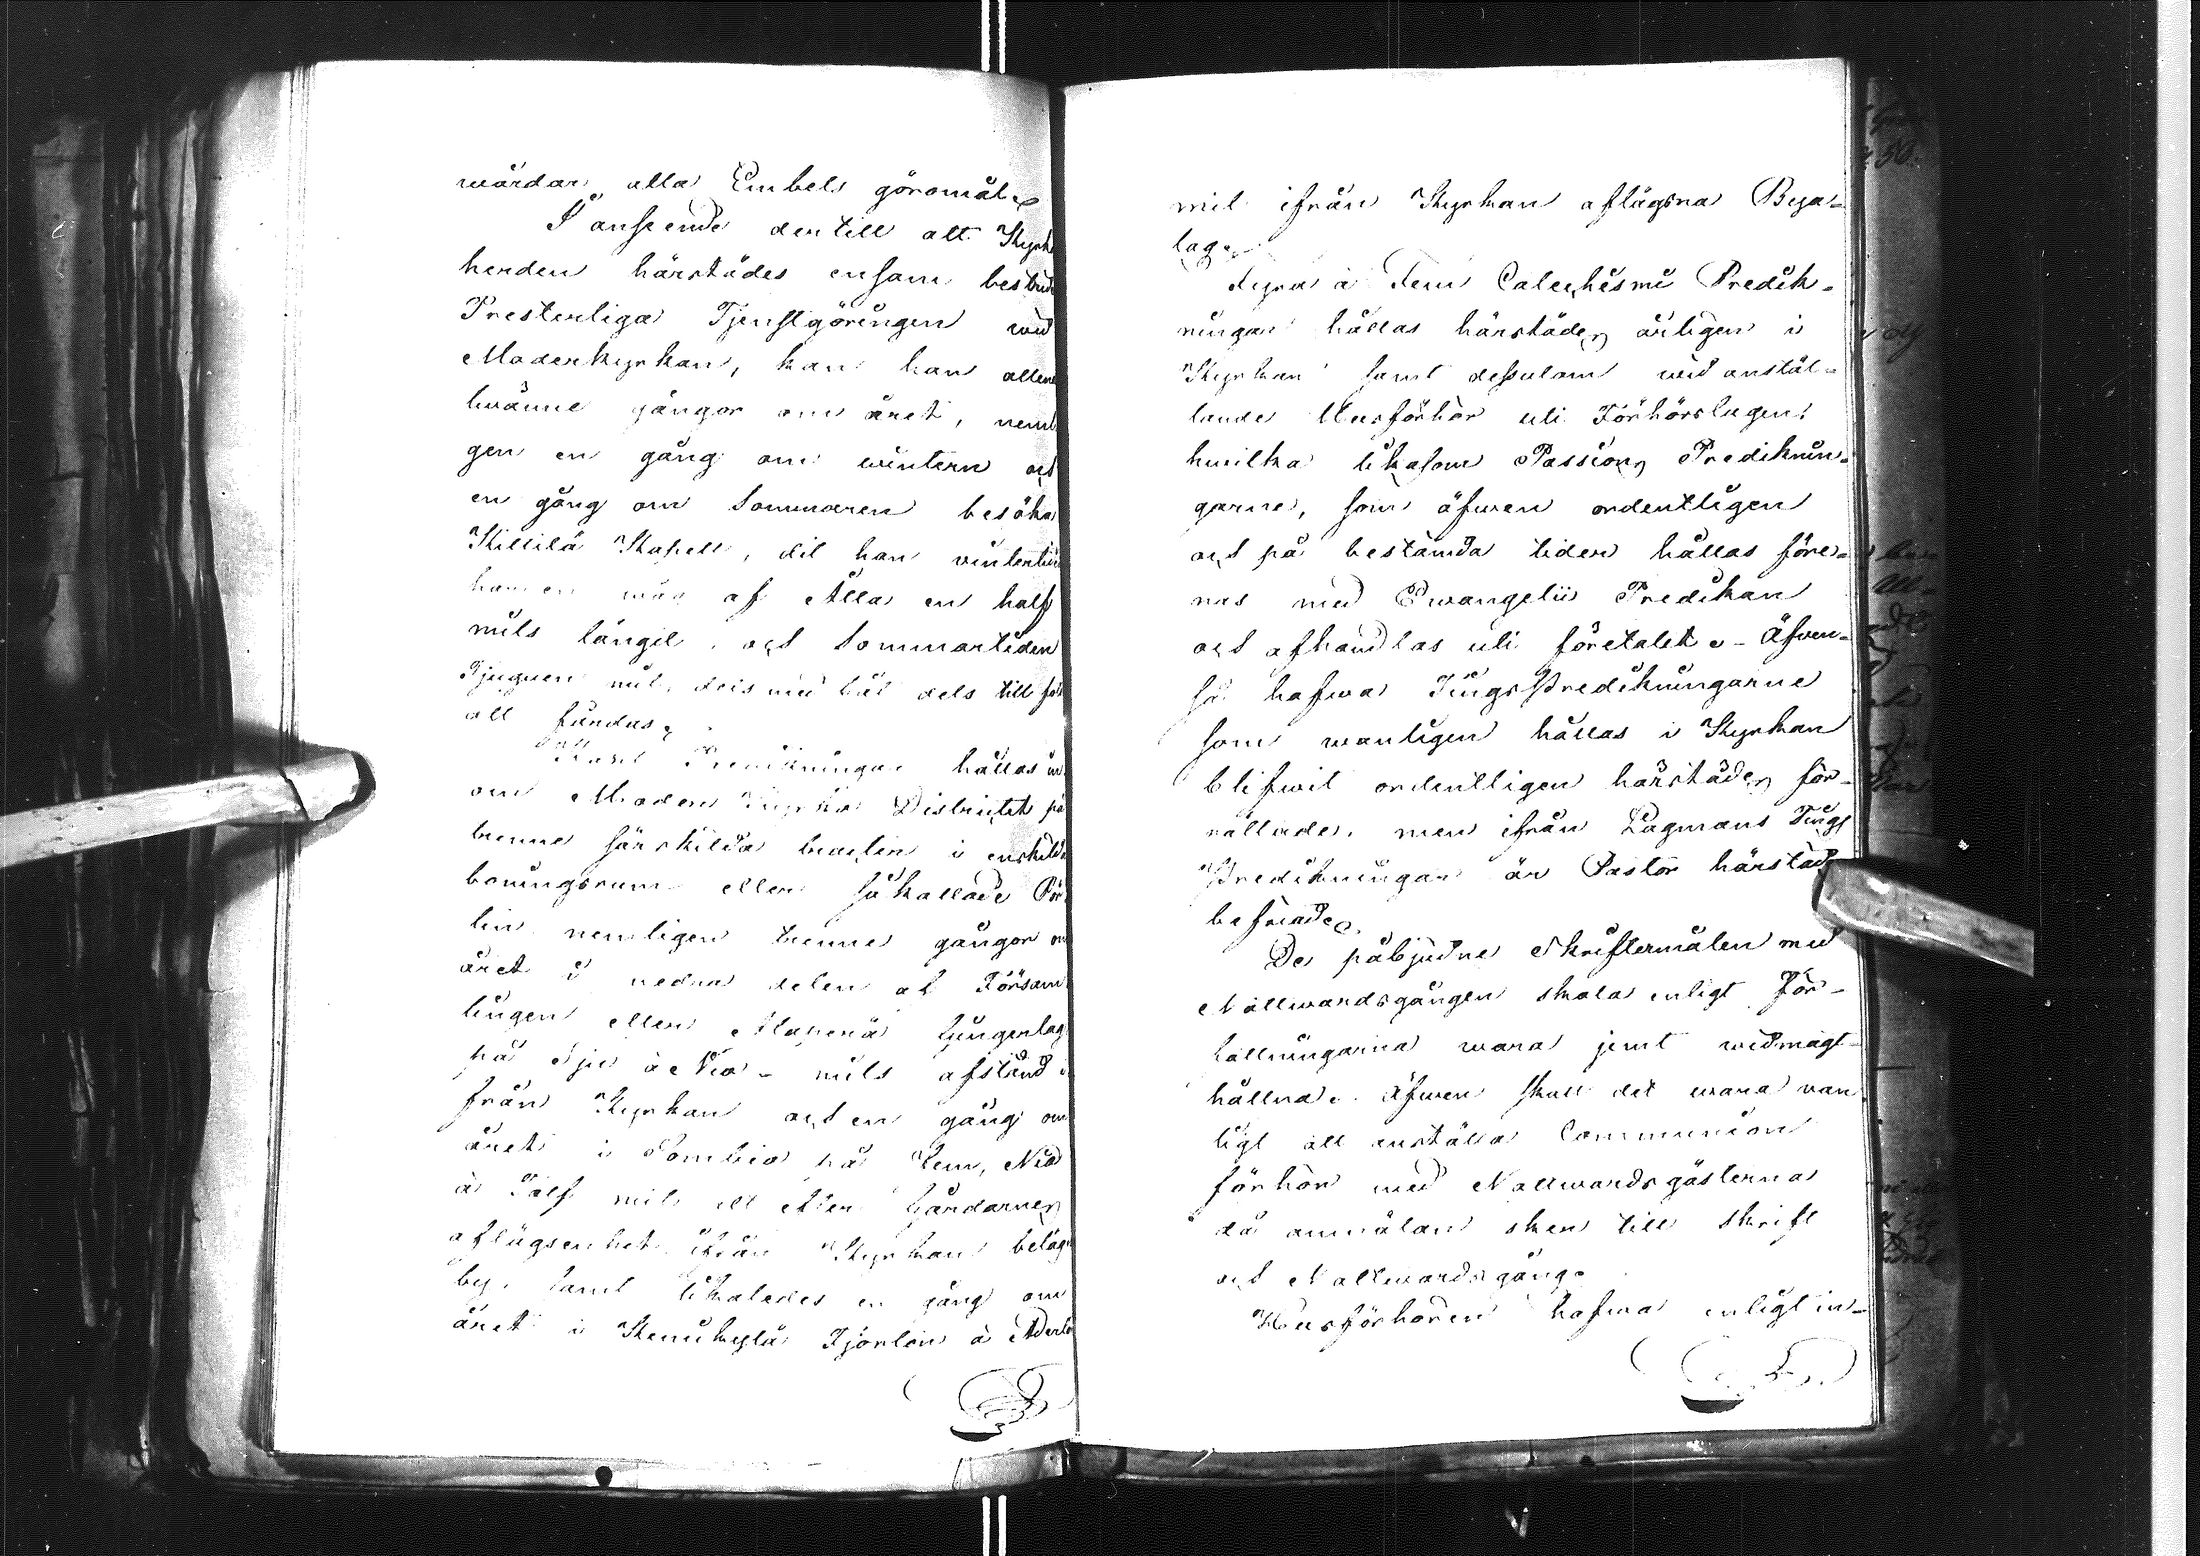 wårdar alla Embets göromål.
I anseende dertill att Kyrk
herden härstädes ensam bestrid
Presterliga Tjenstgöringen wid
Moderkyrkan, kan han allena
twänne gångor om året, nemli
gen en gång om wintern och
en gång om Sommaren besöka
Kittilä Kapell, dit han vintertid
har en wäg af Åtta en half
mils längd, och Sommartiden
Tjuguen mil, dels med båt dels till fot
att färdas.
Predikningar hållas in
om Moder Kyrko Districtet på
trenne särskilda trackter i enskilda
boningsrum eller så kallade Pör
ten nemligen trenne gångor om
året i nedra delen af Försam
lingen eller Alaperä byngerlag
på Sju à Nio mils afstånd i
från Kyrkan och en gång om
året i Sombio på Fem, Nio
à Tolf mil, allt efter Gårdarnes
aflägsenhet ifrån Kyrkan beläg
by, samt likaledes en gång om
året i Kemikylä Fjorton à Aderto
mil ifrån Kyrkan aflägsna Bya-
lag.
Fyra à Fem Catechismi Predik-
ningar hållas härstädes årligen i
Kyrkan samt dessutom wid anstäl-
lande Husförhör uti Förhörslagen,
hwilka likasom Passions Prediknin-
garne, som äfwen ordentligen
och på bestämda tider hållas före-
nas med Ewangelii Predikan
och afhandlas uti företalet. - Äfwen-
så hafwa Tingspredikningarne
som wanligen hållas i Kyrkan
blifwit ordentligen härstädes för-
rättade, men ifrån Lagmans Tings
Predikningar är Pastor härstäd
befriad.
De påbjudne Skriftermålen wid
Nattwardsgången skola enligt För-
hållningarna wara jemt widmagt-
hållna. Äfwen skall det wara van
ligt att anställa Communion
förhör med Nattwardsgästerna
då anmälan sker till skrift
och Nattwardsgång.
Husförhören hafwa enligt in-